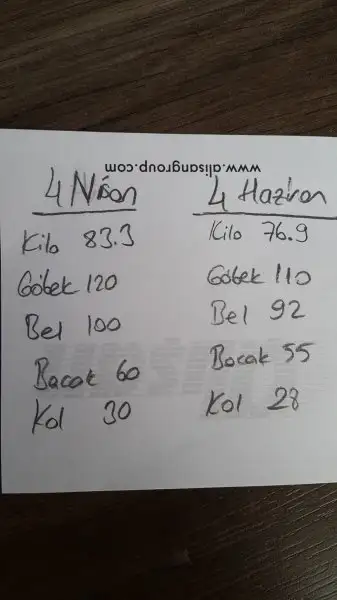 www.alisangroup.com
4 Nisan
Kilo 83.3
Göbek 120
Bel 100
Bacak 60
Kol 30
4 Haziran
Kilo 76.9
Göbek 110
Bel 92
Bacak 55
Kol 28